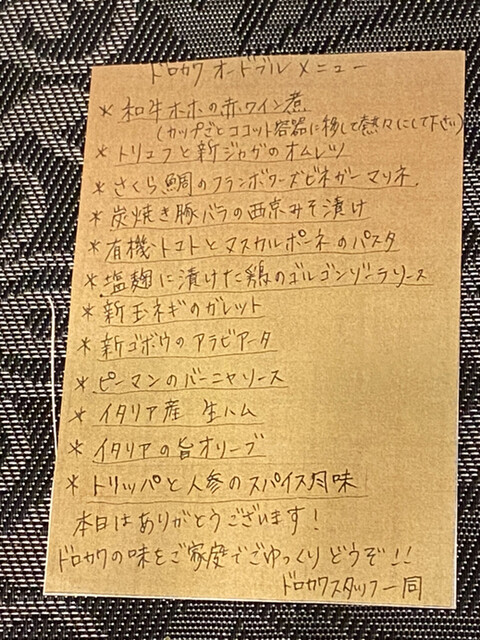 ドロカワ オードブル メニュー
* 和牛ホホの赤ワイン煮
(カップごとココット容器に移して熱々にして下さい)
* トリュフと新ジャガのオムレツ
* さくら鯛のフランボワーズビネガーマリネ
* 炭焼き豚バラの西京みそ漬け
* 有機トマトとマスカルポーネのパスタ
* 塩麹に漬けた鶏のゴルゴンゾーラソース
* 新玉ネギのガレット
* 新ゴボウのアラビアータ
* ピーマンのバーニャソース
* イタリア産 生ハム
* イタリアの旨オリーブ
* トリッパと人参のスパイス風味
本日はありがとうございます!
ドロカワの味をご家庭でごゆっくりどうぞ!!
ドロカワスタッフ一同